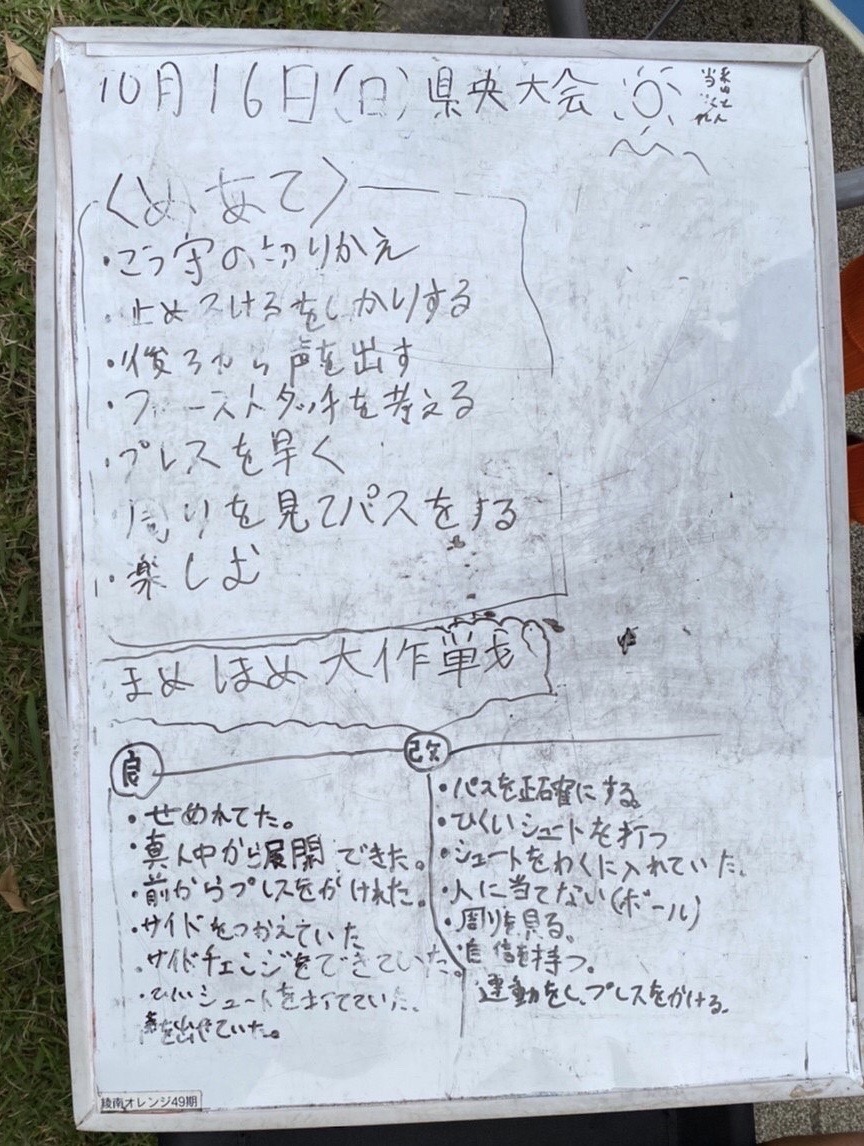 10月16日(日)県央大会
〈めあて〉
・こう守の切りかえ
・止めるけるをしかりする
・後ろから声を出す
・ファーストタッチを考える
・プレスを早く
周りを見てパスをする
・楽しむ
まめほめ大作戦
良
・せめれてた。
・真ん中から展開できた。
・前からプレスをかけれた。
・サイドをつかえていた
・サイドチェンジをできていた。
・ひくいシュートを打てていた。
声を出せていた。
改
・パスを正確にする。
・ひくいシュートを打つ
・シュートをわくに入れていた。
・人に当てない(ボール)
・周りを見る。
・自信を持つ。
運動をし、プレスをかける。
綾南オレンジ49期